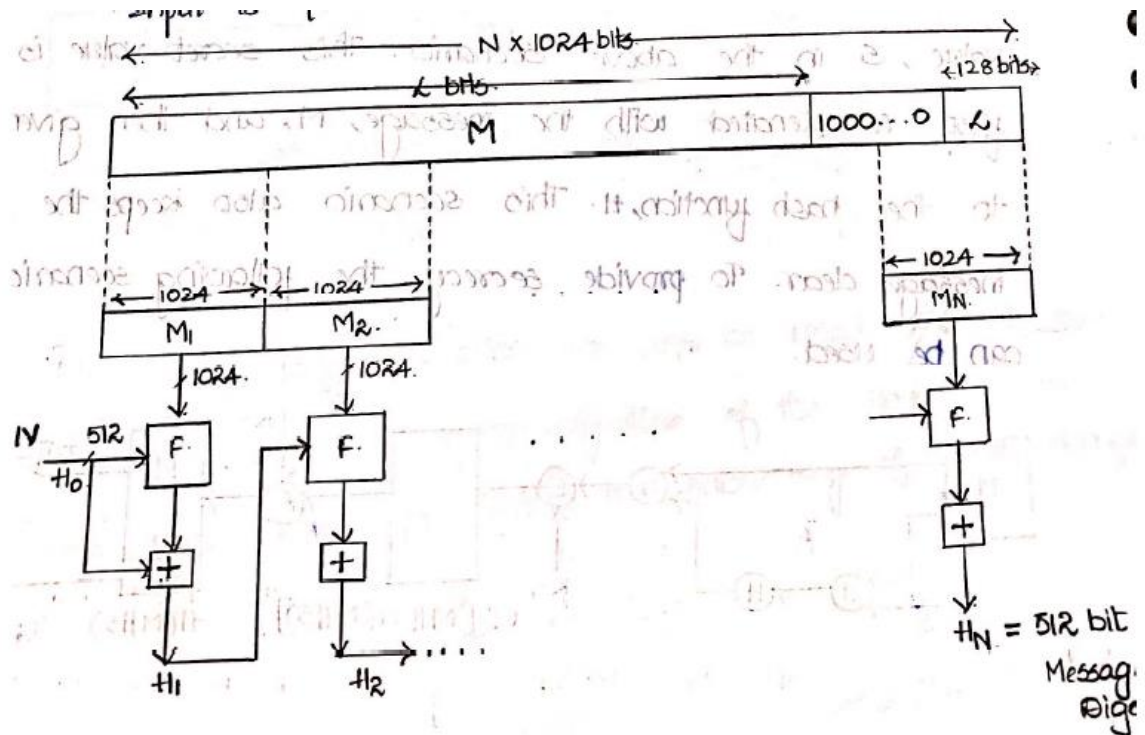 N X 1024 bits
L bits
128 bits
M 1000...0 L
1024 1024 1024
M1 M2. MN.
1024. 1024.
IV 512
H0
F. F. . . . . . F.
+ + +
H1 H2 .....
HN = 512 bit
Messag
Dige